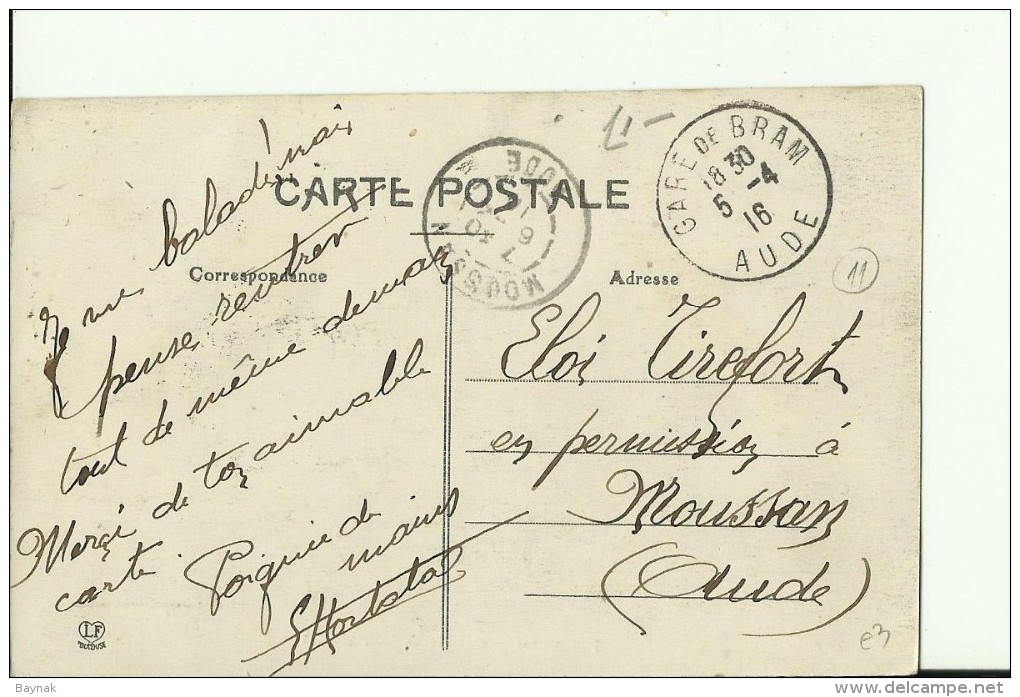 CARTE POSTALE
Correspondance
Adresse
GARE DE BRAM
18 30
5 -4
16
AUDE
MOUSSAN
AUDE
11
Je me baladerai
pense rentrer
tout de même demain
Merçi de ton aimable
carte
Poignée de
mains
Eloi Tirefort
en permission à
Moussan
(Aude)
LF
e3
Baynak
www.delcampe.net